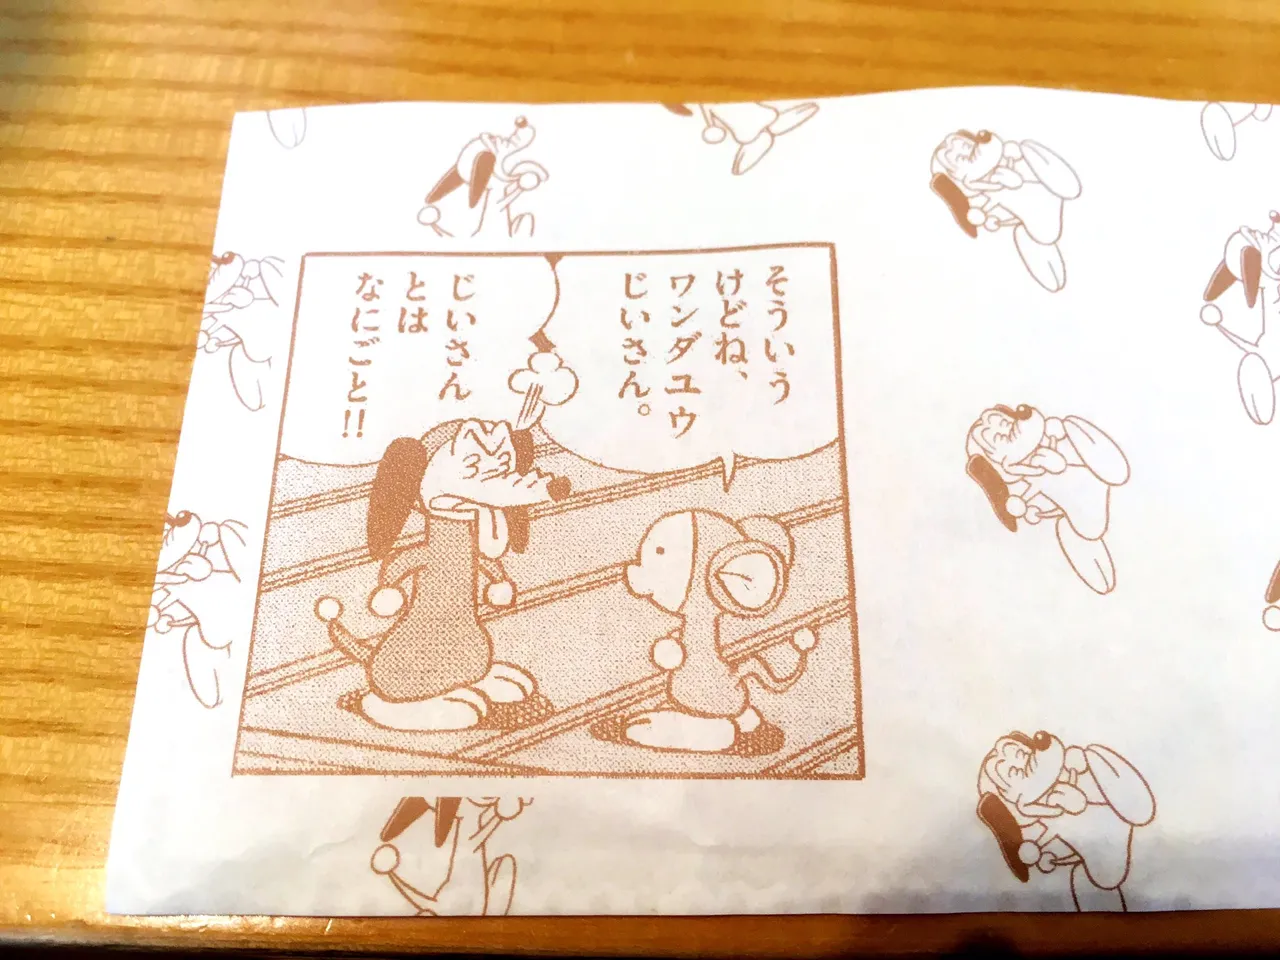 そういう
けどね、
ワンダユウ
じいさん。
じいさん
とは
なにごと!!